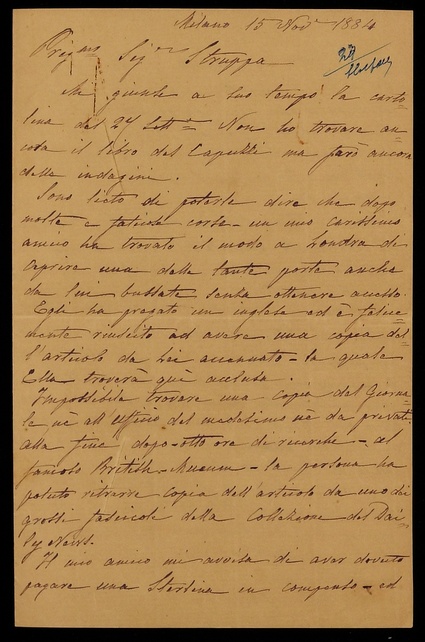 Milano 15 Nov.e 1884
Preg.mo Sig.r Struppa
Mi giunse a suo tempo la carto=
lina del 27 Sett.e Non ho trovare an=
cora il libro del Capelli ma farò ancora
delle indagini.
Sono lieto di poterle dire che dopo
molte e faticose corse - un mio carissimo
amico ha trovato il modo a Londra di
aprire una delle tante porte anche
da lui bussate senza ottenere accesso.
Egli ha pregato un inglese ed è felice=
mente riuscito ad avere una copia del=
l'articolo da Lei accennato - la quale
Ella troverà quì acclusa.
Impossibile trovare una copia del Giorna=
le nè all'ufficio del medesimo nè da privati.
alla fine dopo - otto ore di ricerche - al
famoso British - Museum - la persona ha
potuto ritrarre copia dell'articolo da uno dei
grossi fascicoli della Collezione del Dai=
ly News.
Il mio amico mi avvisa di aver dovuto
pagare una Sterlina in compenso - ed